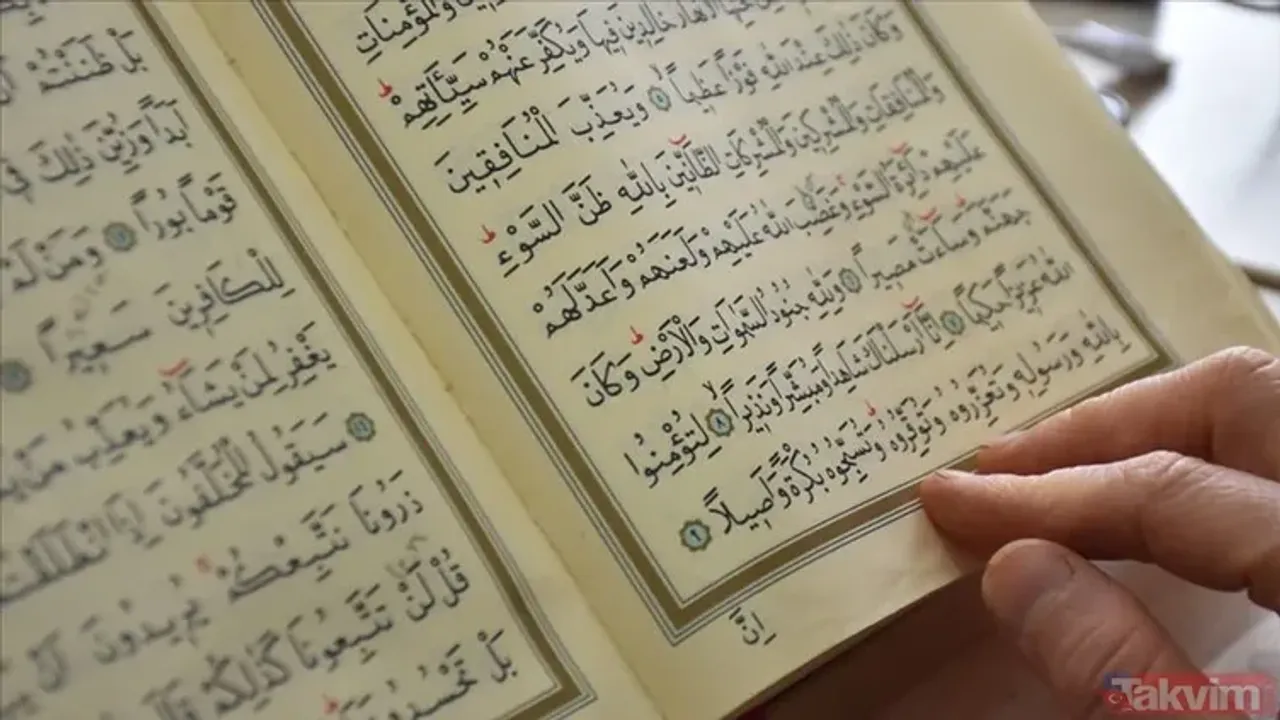 وَالْمُؤْمِنَاتِ
الْاَنْهَارُ خَالِدِينَ فِيهَا وَيُكَفِّرَ عَنْهُمْ سَيِّئَاتِهِمْ ط
وَكَانَ ذٰلِكَ عِنْدَ اللّٰهِ فَوْزًا عَظِيمًا ٥ وَيُعَذِّبَ الْمُنَافِقِينَ
وَالْمُنَافِقَاتِ وَالْمُشْرِكِينَ وَالْمُشْرِكَاتِ الظَّانِّينَ بِاللّٰهِ ظَنَّ السَّوْءِ ط
عَلَيْهِمْ دَائِرَةُ السَّوْءِ وَغَضِبَ اللّٰهُ عَلَيْهِمْ وَلَعَنَهُمْ وَاَعَدَّ لَهُمْ
جَهَنَّمَ ط وَسَاءَتْ مَصِيرًا ٦ وَلِلّٰهِ جُنُودُ السَّمٰوَاتِ وَالْاَرْضِ ط وَكَانَ
اللّٰهُ عَزِيزًا حَكِيمًا ٧ اِنَّا اَرْسَلْنَاكَ شَاهِدًا وَمُبَشِّرًا وَنَذِيرًا ٨ لِتُؤْمِنُوا
بِاللّٰهِ وَرَسُولِهِ وَتُعَزِّرُوهُ وَتُوَقِّرُوهُ ط وَتُسَبِّحُوهُ بُكْرَةً وَاَصِيلًا ٩
اِنَّ
بَلْ ظَنَنْتُمْ
اَبَدًا وَزُيِّنَ ذٰلِكَ فِي
قَوْمًا بُورًا ١٢ وَمَنْ لَمْ
لِلْكَافِرِينَ سَعِيرًا
يَغْفِرُ لِمَنْ يَشَاءُ وَيُعَذِّبُ مَنْ
١٤ سَيَقُولُ الْمُخَلَّفُونَ اِذَا انْطَلَقْتُمْ
ذَرُونَا نَتَّبِعْكُمْ يُرِيدُونَ اَنْ
قُلْ لَنْ تَتَّبِعُونَا كَذٰلِكُمْ قَالَ
بَلْ تَحْسُدُونَنَا
Takvim